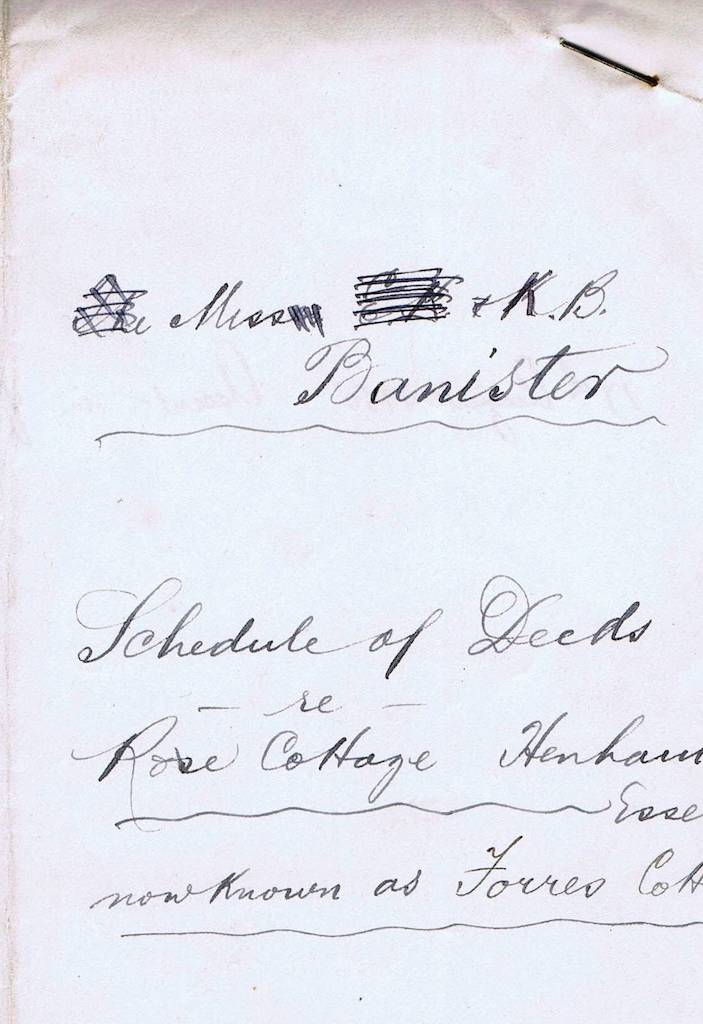 Miss & K.B.
Banister
Schedule of Deeds
— re —
Rose Cottage Henham
Esse
now known as Forres Cott